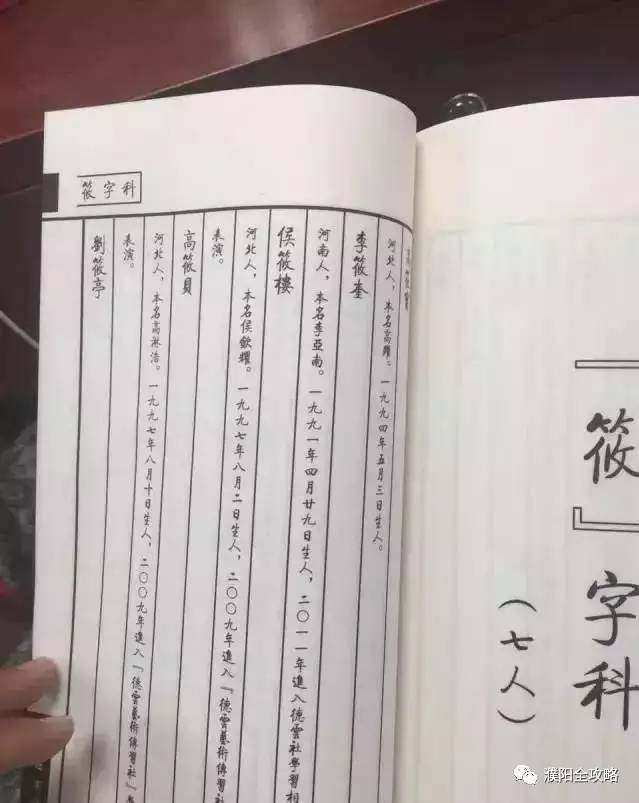 『筱』字科
（七人）
筱字科
高筱寶
河北人，本名高。一九九四年五月三日生人。
李筱奎
河南人，本名李亞南。一九九一年四月廿九日生人，二〇一一年進入德雲社學習相
侯筱樓
河北人，本名侯歆耀。一九九七年八月二日生人，二〇〇九年進入『德雲藝術傳習社
表演。
高筱貝
河北人，本名高淋浩。一九九七年八月十日生人，二〇〇九年進入『德雲藝術傳習社』
表演。
劉筱亭
濮阳全攻略